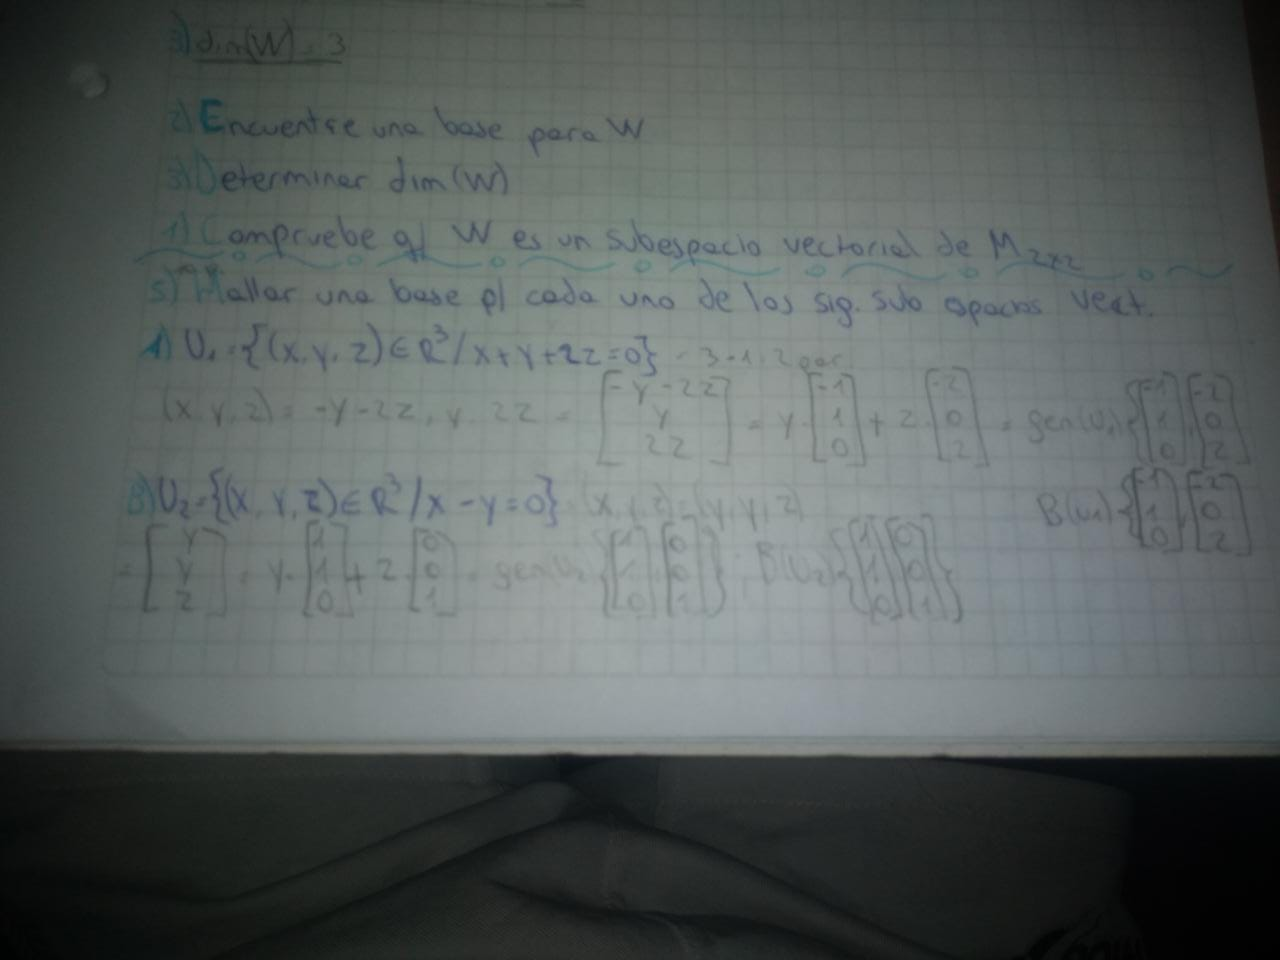 3) dim(W) = 3
2) Encuentre una base para W
3) Determinar dim(W)
1) Compruebe q/ W es un subespacio vectorial de M2x2
5) Hallar una base p/ cada uno de los sig. sub espacios vect.
A) U1 = {(x, y, z) ∈ R³ / x + y + 2z = 0} = 3 - 1 = 2
(x, y, z) = -y - 2z, y, 2z = [-y - 2z; y; 2z] = y · [-1; 1; 0] + z · [-2; 0; 2] = gen(U1) {[-1; 1; 0], [-2; 0; 2]
B(U1) {[-1; 1; 0], [-2; 0; 2]
B) U2 = {(x, y, z) ∈ R³ / x - y = 0} = (x, y, z) = (y, y, z)
= [y; y; z] = y · [1; 1; 0] + z · [0; 0; 1] = gen U2 {[1; 1; 0], [0; 0; 1]} ; B(U2) {[1; 1; 0] [0; 0; 1]}